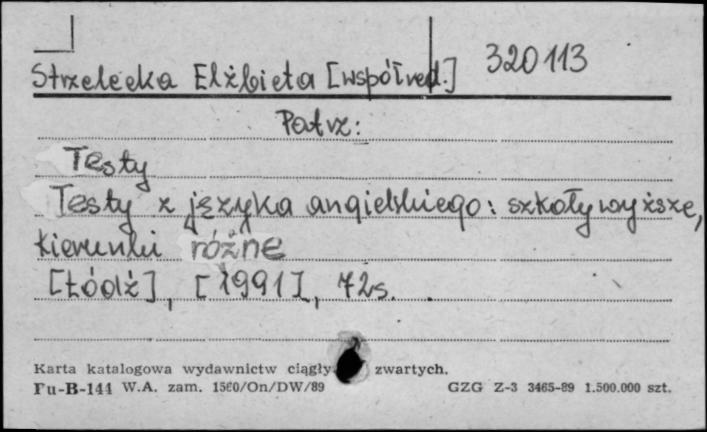 320113
Strzelecka Elżbieta [współred.]
Patrz:
Testy
Testy z języka angielskiego: szkoły wyższe,
kierunki różne
[Łódź], [1991], 72s.
Karta katalogowa wydawnictw ciągły zwartych.
Fu-B-144 W.A. zam. 1560/On/DW/89 GZG Z-3 3465-89 1.500.000 szt.